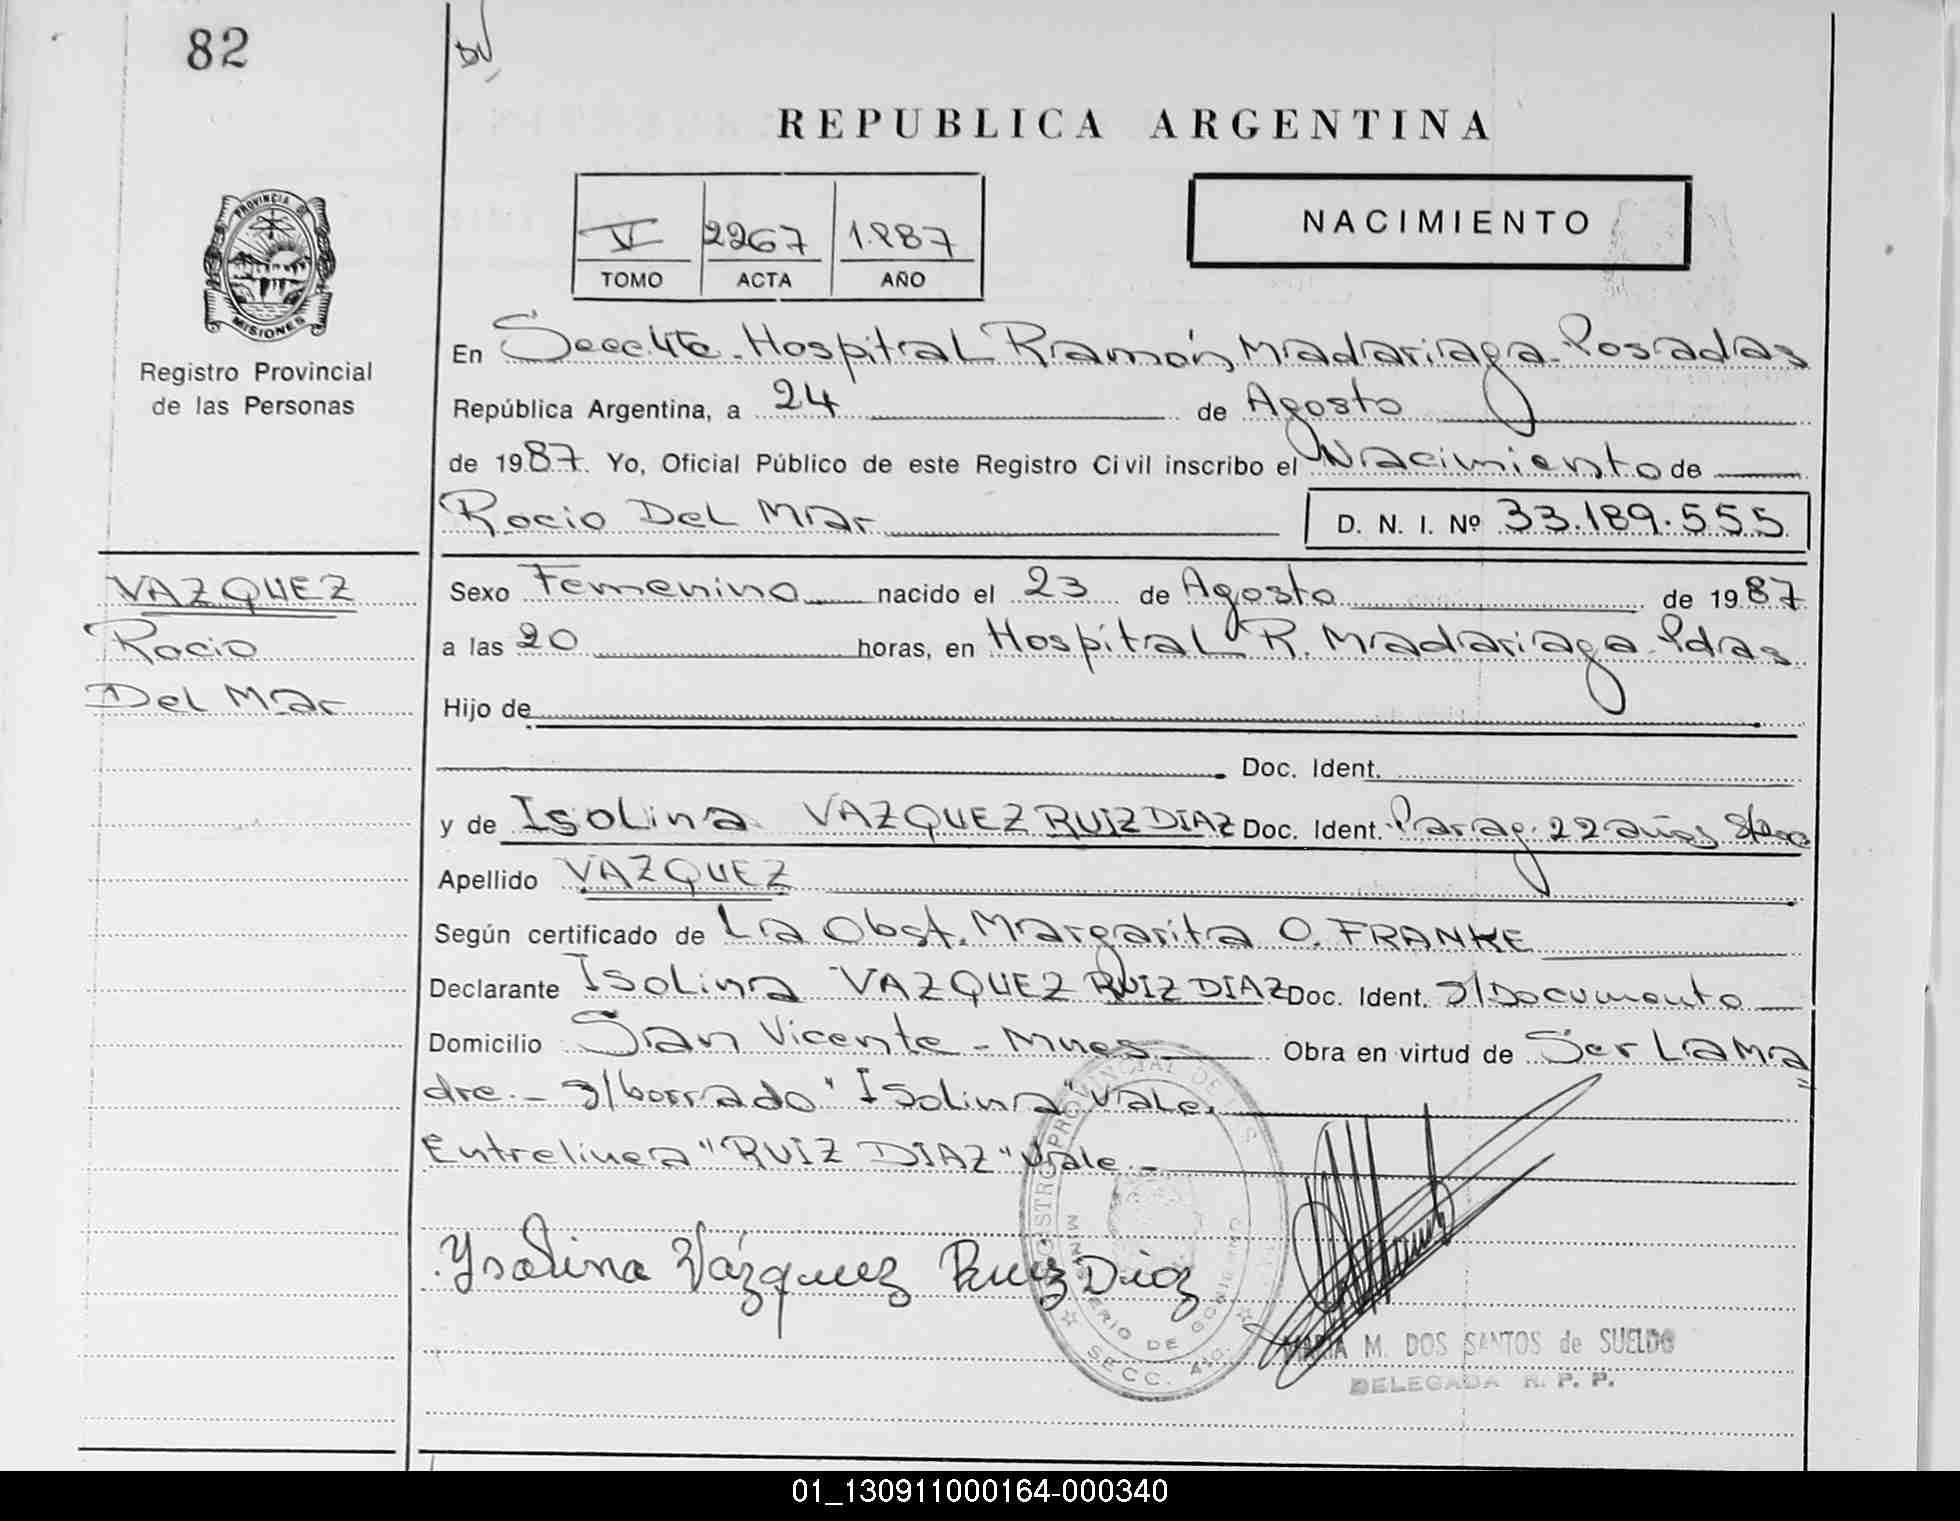 82
REPUBLICA ARGENTINA
V 2267 1.987
TOMO ACTA AÑO
NACIMIENTO
PROVINCIA DE
MISIONES
Registro Provincial
de las Personas
En Secc. 4ta - Hospital Ramón Madariaga - Posadas
República Argentina, a 24 de Agosto
de 1987. Yo, Oficial Público de este Registro Civil inscribo el Nacimiento de
Rocio Del Mar D. N. I. Nº 33.189.555
VAZQUEZ
Rocio
Del Mar
Sexo Femenino nacido el 23 de Agosto de 1987
a las 20 horas, en Hospital R. Madariaga - Pdas
Hijo de
Doc. Ident.
y de Isolina VAZQUEZ RUIZ DIAZ Doc. Ident. Parag. 22 años
Apellido VAZQUEZ
Según certificado de La Obst. Margarita O. FRANKE
Declarante Isolina VAZQUEZ RUIZ DIAZ Doc. Ident. s/Documento
Domicilio San Vicente - Mnes Obra en virtud de Ser La Ma
dre.- s/borrado "Isolina" Vale.
Entrelinea "RUIZ DIAZ" Vale.-
Ysolina Vázquez Ruiz Diaz
MINISTERIO DE GOBIERNO
SECC.
MARIA M. DOS SANTOS de SUELDO
DELEGADA R. P. P.
01_130911000164-000340